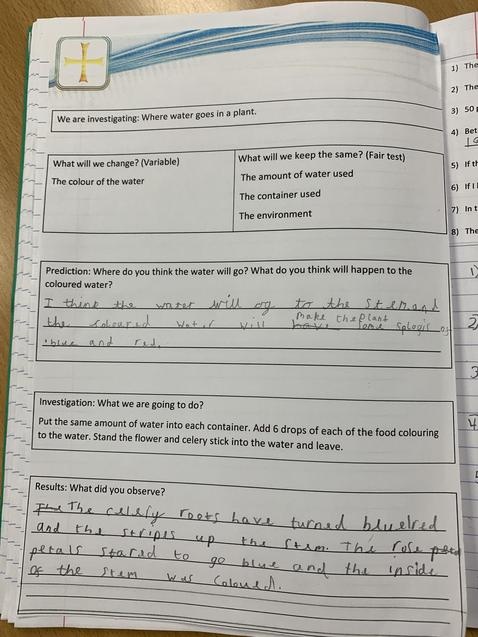 We are investigating: Where water goes in a plant.
What will we change? (Variable)
The colour of the water
What will we keep the same? (Fair test)
The amount of water used
The container used
The environment
Prediction: Where do you think the water will go? What do you think will happen to the
coloured water?
I think the water will og to the stem and
the coloured water will make the plant have some splogis of
blue and red.
Investigation: What we are going to do?
Put the same amount of water into each container. Add 6 drops of each of the food colouring
to the water. Stand the flower and celery stick into the water and leave.
Results: What did you observe?
The The celery roots have turned blue/red
and the stripes up the stem. The rose peta
petals stared to go blue and the inside
of the stem was coloured.
1) The
2) The
3) 50
4) Bet
5) If th
6) If I
7) In t
8) The
1)
2
3
4